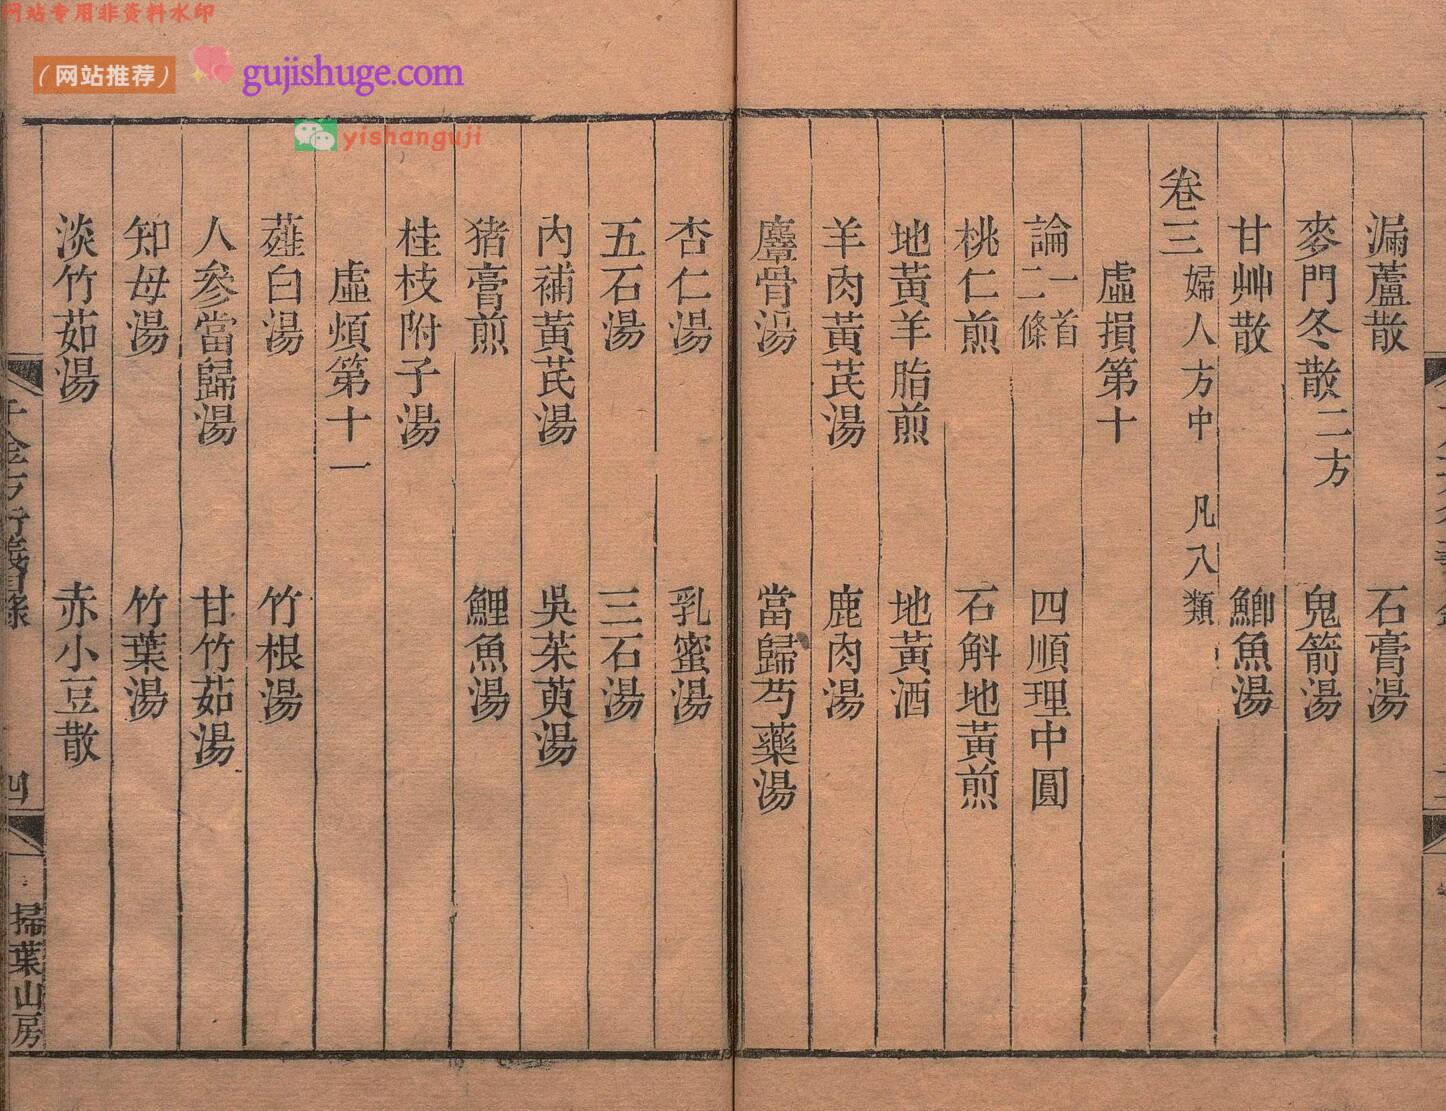 网站专用非资料水印
（网站推荐）
gujishuge.com
yishanguji
漏蘆散 石膏湯
麥門冬散二方 鬼箭湯
甘艸散 鯽魚湯
卷三 婦人方中 凡八類
虛損第十
論一首二條 四順理中圓
桃仁煎 石斛地黃煎
地黃羊脂煎 地黃酒
羊肉黃芪湯 鹿肉湯
麞骨湯 當歸芍藥湯
杏仁湯 乳蜜湯
五石湯 三石湯
內補黃芪湯 吳茱萸湯
猪膏煎 鯉魚湯
桂枝附子湯
虛煩第十一
薤白湯 竹根湯
人參當歸湯 甘竹茹湯
知母湯 竹葉湯
淡竹茹湯 赤小豆散
千金方衍義目錄 四 掃葉山房